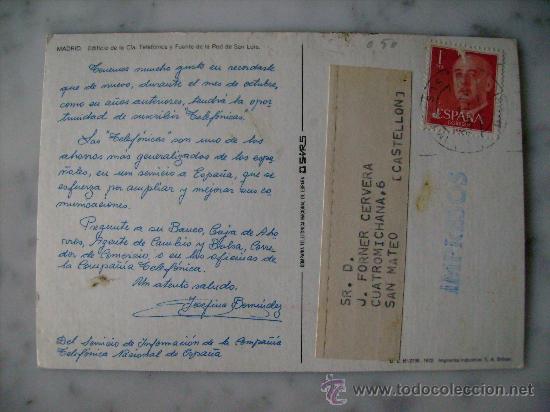 MADRID. Edificio de la Cía. Telefónica y Fuente de la Red de San Luis.
Tenemos mucho gusto en recordarle
que de nuevo, durante el mes de octubre,
como en años anteriores, tendrá la opor-
tunidad de suscribir "Telefónicas".
Las "Telefónicas" son uno de los
ahorros mas generalizados de los espa-
ñoles, en un servicio a España, que se
esfuerza por ampliar y mejorar sus co
municaciones.
Pregunte a su Banco, Caja de Aho
rros, Agente de Cambio y Bolsa, Corre
dor de Comercio o en las oficinas de
la Compañía Telefónica.
Un atento saludo.
Josefina Bermúdez
Del Servicio de Información de la Compañía
Telefónica Nacional de España
COMPAÑIA TELEFONICA NACIONAL DE ESPAÑA
SR. D.
J. FORNER CERVERA
CUATROMICHANA,6
SAN MATEO
[CASTELLON]
0,50
1
ESPAÑA
CORREOS
IMPRESOS
1972 Imprenta Industrial, S. A. Bilbao
www.todocoleccion.net